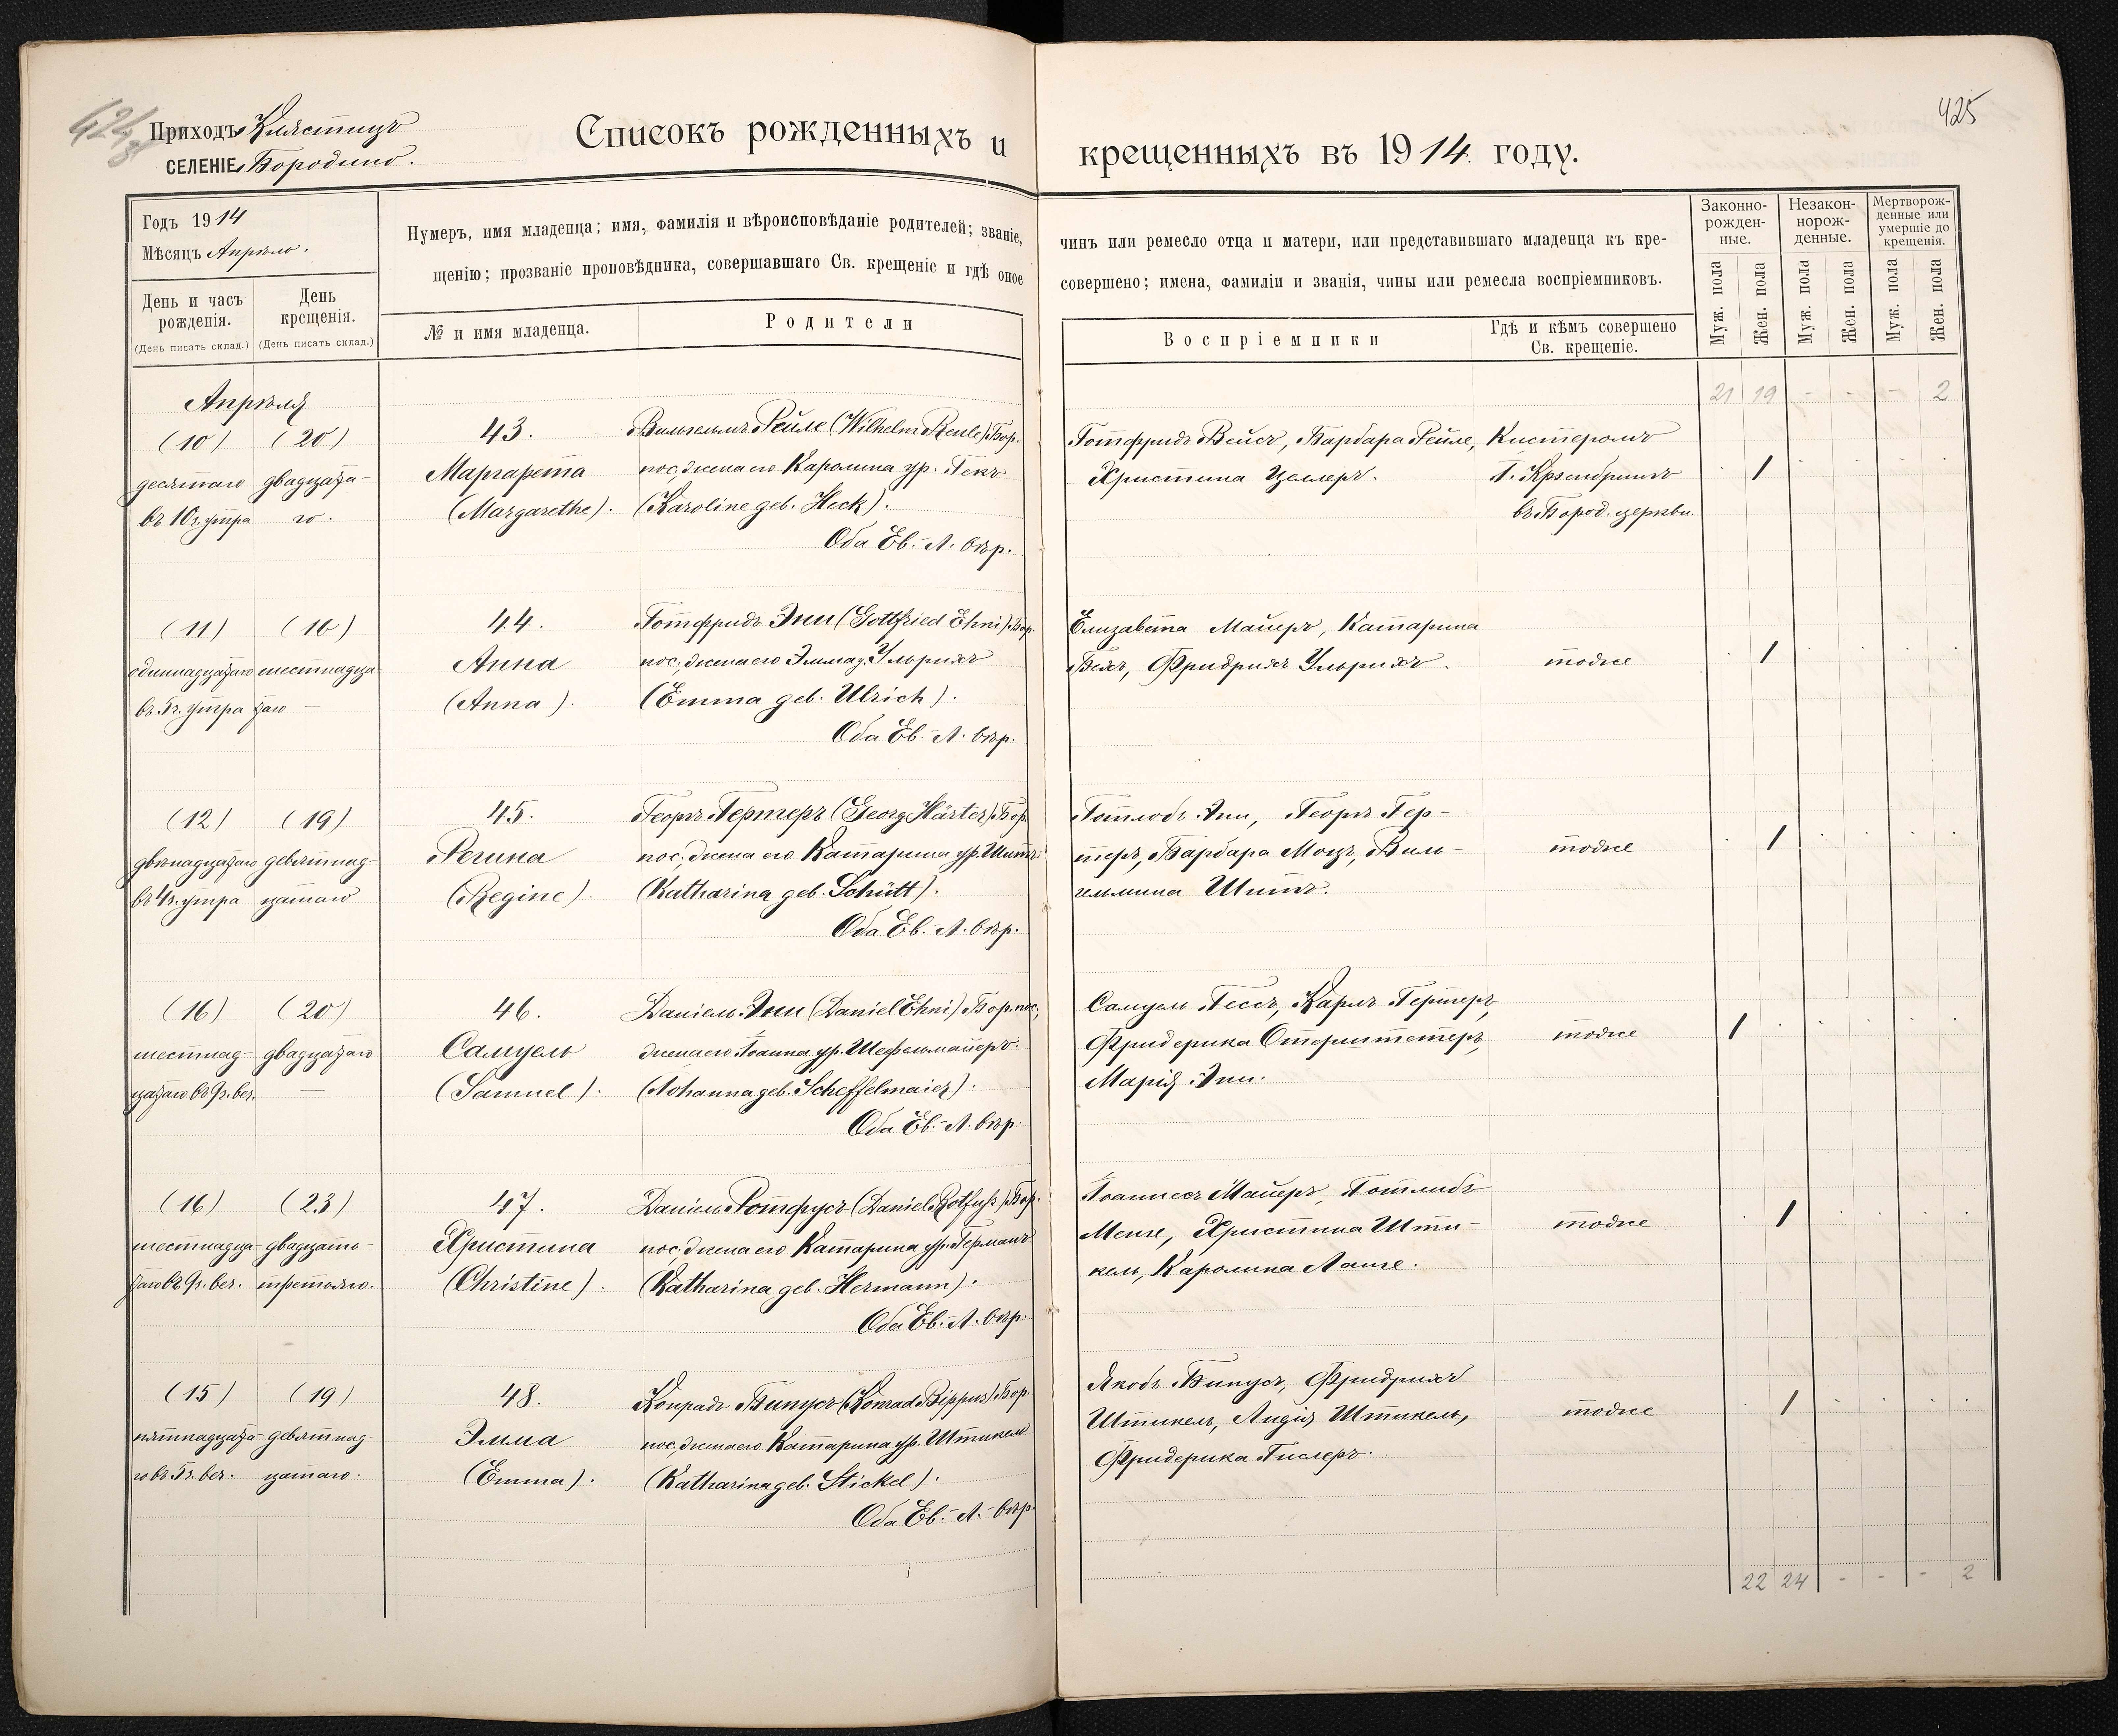 425
Приходъ Клястицъ
СЕЛЕНІЕ Бородино.
Списокъ рожденныхъ и крещенныхъ въ 1914 году.
Годъ 1914
Мѣсяцъ Апрѣль.
День и часъ рожденія.
(День писать склад.)
День крещенія.
(День писать склад.)
Нумеръ, имя младенца; имя, фамилія и вѣроисповѣданіе родителей; званіе, чинъ или ремесло отца и матери, или представившаго младенца къ кре-
щенію; прозваніе проповѣдника, совершавшаго Св. крещеніе и гдѣ оное совершено; имена, фамиліи и званія, чины или ремесла воспріемниковъ.
№ и имя младенца.
Родители
Воспріемники
Гдѣ и кѣмъ совершено
Св. крещеніе.
Законно-
рожден-
ные.
Незакон-
норож-
денные.
Мертворож-
денные или
умершіе до
крещенія.
Муж. пола
Жен. пола
Муж. пола
Жен. пола
Муж. пола
Жен. пола
21 19 - - - 2
Апрѣля
(10) (20)
десятаго двадцата-
въ 10 ч. утра го.
43.
Маргарета
(Margarethe).
Вильгельмъ Рейле (Wilhelm Reule) Бор.
пос., жена его Каролина ур. Гекъ
(Karoline geb. Heck).
Оба Ев.-Л. вѣр.
Готфридъ Вейсъ, Барбара Рейле,
Христина Целлеръ.
Кистеромъ
въ Бород. церкви.
1
(11) (16)
одиннадцатаго шестнадца-
въ 5 ч. утра таго
44.
Анна
(Anna).
Готфридъ Эни (Gottfried Ehni) Бор.
пос., жена его Эмма у. Ульрихъ
(Emma geb. Ulrich).
Оба Ев.-Л. вѣр.
Елизавета Майеръ, Катарина
Бехъ, Фридрихъ Ульрихъ.
тоже
1
(12) (19)
двѣнадцатаго девятнад-
въ 4 ч. утра цатаго
45.
Регина
(Regine).
Георгъ Гертеръ (Georg Härter) Бор.
пос., жена его Катарина ур. Шитъ
(Katharina geb. Schütt).
Оба Ев.-Л. вѣр.
Готлобъ Эни, Георгъ Гер-
теръ, Барбара Моцъ, Виль-
гельмина Шитъ.
тоже
1
(16) (20)
шестнад- двадцатаго
цатаго въ 9 ч. веч.
46.
Самуель
(Samuel).
Даніель Эни (Daniel Ehni) Бор. пос.,
жена его Іоанна ур. Шефельмайеръ.
(Johanna geb. Scheffelmaier).
Оба Ев.-Л. вѣр.
Самуель Гессъ, Карлъ Гертеръ,
Фридерика Отерштетеръ,
Марія Эни.
тоже
1
(16) (23)
шестнадца- двадцать-
таго въ 9 ч. веч. третьяго.
47.
Христина
(Christine).
Даніель Ротфусъ (Daniel Rotfuß) Бор.
пос., жена его Катарина ур. Германъ
(Katharina geb. Hermann).
Оба Ев.-Л. вѣр.
Іоаннесъ Майеръ, Готлибъ
Менге, Христина Шти-
кель, Каролина Ланге.
тоже
1
(15) (19)
пятнадцата- девятнад-
го въ 5 ч. веч. цатаго.
48.
Эмма
(Emma).
Конрадъ Бипусъ (Konrad Bippus) Бор.
пос., жена его Катарина ур. Штикель
(Katharina geb. Stickel).
Оба Ев.-Л. вѣр.
Якобъ Бипусъ, Фридрихъ
Штикель, Лидія Штикель,
Фридерика Гислеръ.
тоже
1
22 24 - - - 2